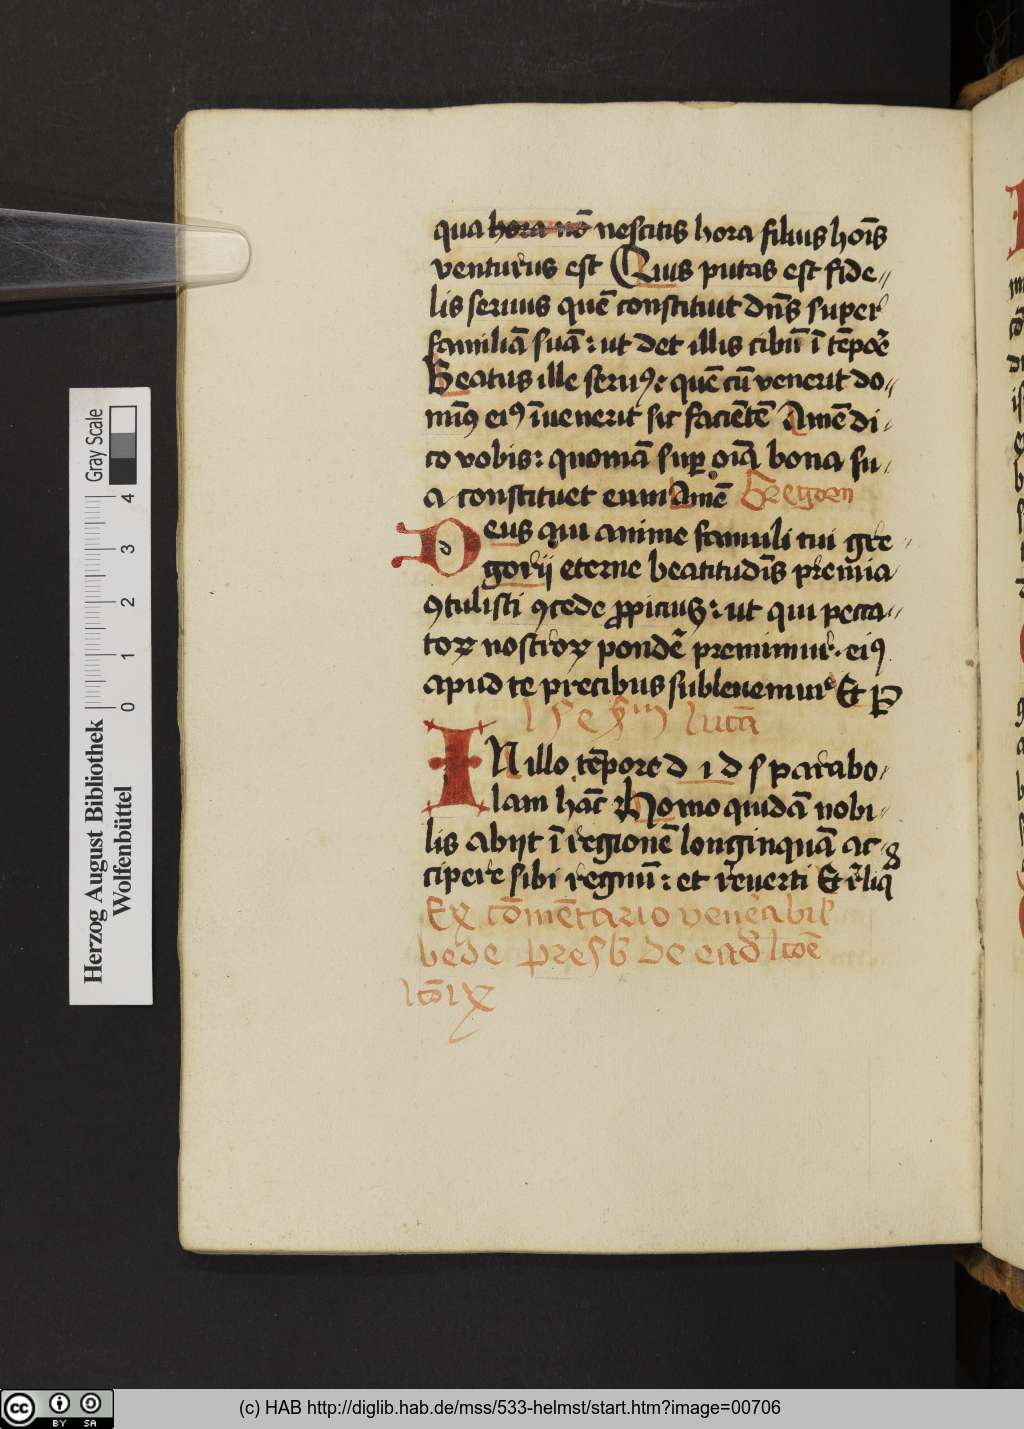 qua hora nō nescitis hora filius hoīs
venturus est Quis putas est fide-
lis seruus quē constituit dn̄s super
familiā suā: ut det illis cibū ī tēpore
Beatus ille seruꝰ: quē cū venerit do-
minꝰ eiꝰ īuenerit sic faciētē Amē di-
co vobis: quoniā suꝑ oīa bona su-
a constituet eum Amē Gregorii
Deus qui anime famuli tui gre-
gorij eterne beatitudīs premia
ꝯtulisti ꝯcede ꝓpicius: ut qui pecca-
toꝝ nostroꝝ pondē premimur. eiꝰ
apud te precibus subleuemur Et
lucā
IN illo tēpore d i d s parabo-
lam hāc Homo quidā nobi-
lis abijt ī regionē longinquā ac-
cipere sibi regnū: et reuerti Et reliq̄
Ex cōmētario venerabil
bede presb de eadē lcōe
lcō ix
Herzog August Bibliothek
Wolfenbüttel
Gray Scale
0 1 2 3 4
cc BY SA
(c) HAB http://diglib.hab.de/mss/533-helmst/start.htm?image=00706